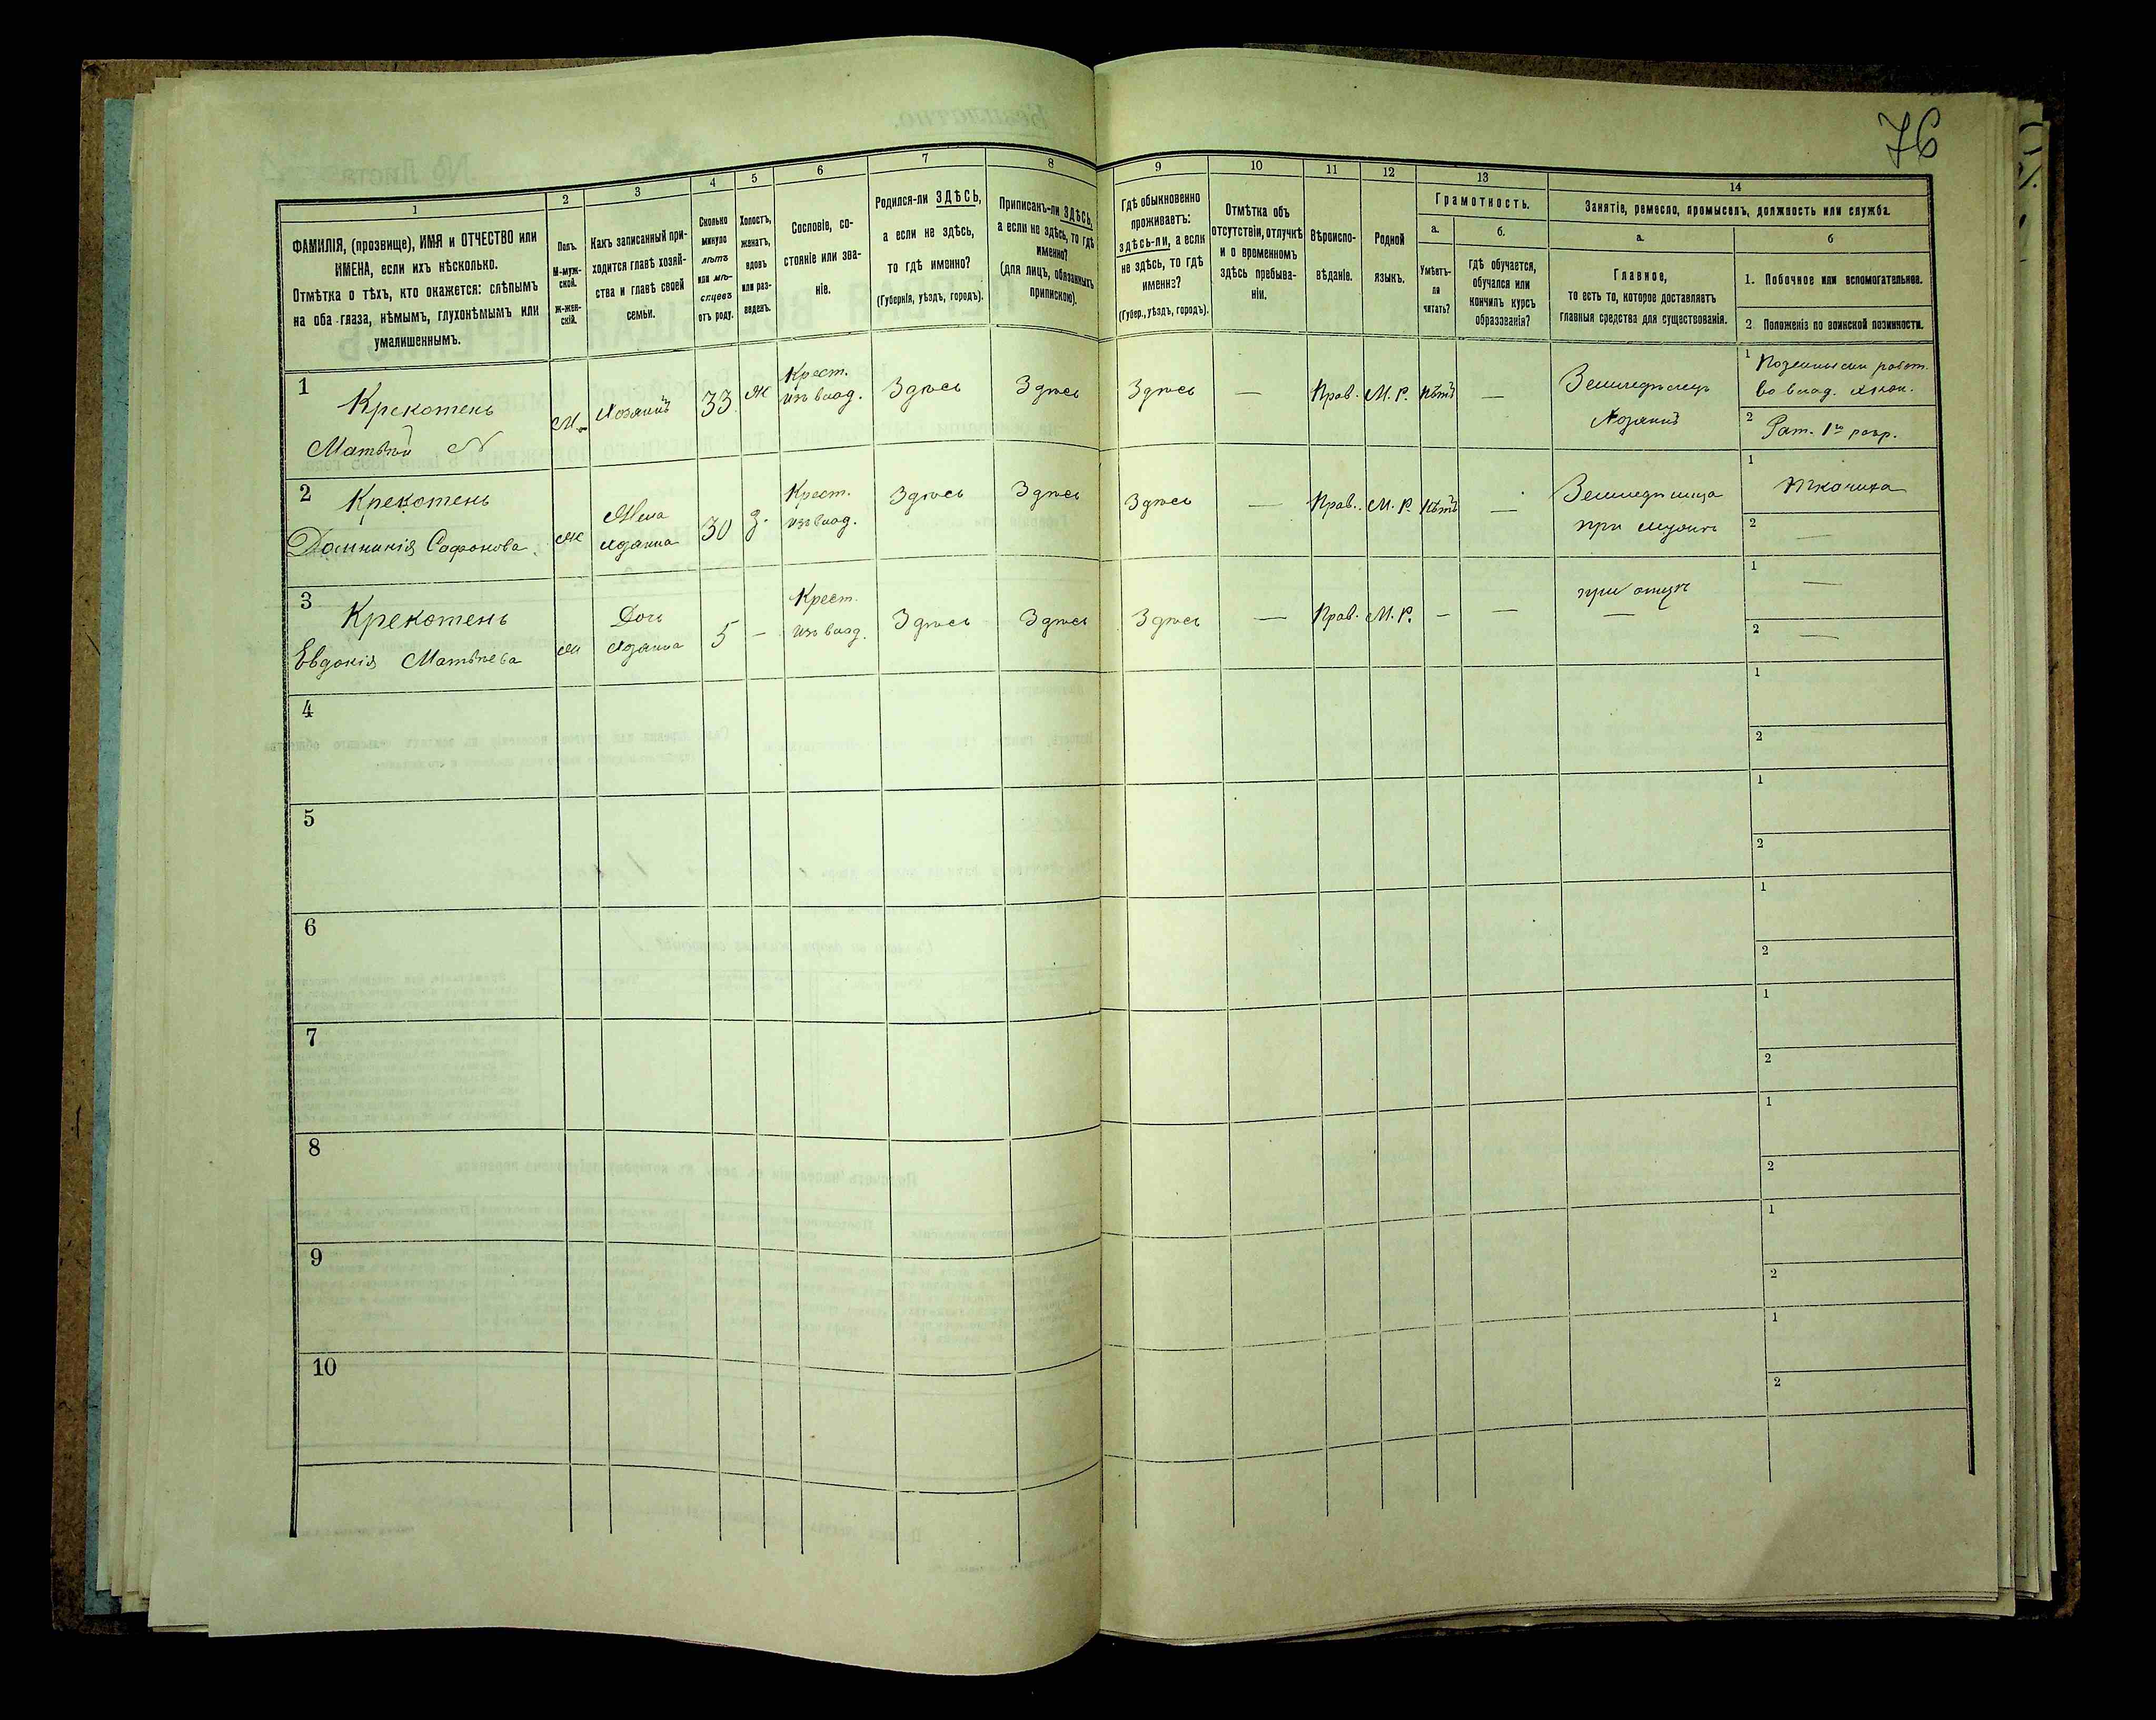 76
1
2
3
4
5
6
7
8
9
10
11
12
13
14
ФАМИЛІЯ, (прозвище), ИМЯ и ОТЧЕСТВО или
ИМЕНА, если ихъ нѣсколько.
Отмѣтка о тѣхъ, кто окажется: слѣпымъ
на оба глаза, нѣмымъ, глухонѣмымъ или
умалишеннымъ.
Полъ.
М-муж-
ской.
Ж-жен-
скій.
Какъ записанный при-
ходится главѣ хозяй-
ства и главѣ своей
семьи.
Сколько
минуло
лѣтъ
или мѣ-
сяцевъ
отъ роду.
Холостъ,
женатъ,
вдовъ
или раз-
веденъ.
Сословіе, со-
стояніе или зва-
ніе.
Родился-ли ЗДѢСЬ,
а если не здѣсь,
то гдѣ именно?
(Губернія, уѣздъ, городъ).
Приписанъ-ли ЗДѢСЬ,
а если не здѣсь, то гдѣ
именно?
(для лицъ, обязанныхъ
припискою).
Гдѣ обыкновенно
проживаетъ:
здѣсь-ли, а если
не здѣсь, то гдѣ
именно?
(Губер., уѣздъ, городъ).
Отмѣтка объ
отсутствіи, отлучкѣ
и о временномъ
здѣсь пребыва-
ніи.
Вѣроиспо-
вѣданіе.
Родной
языкъ.
Грамотность.
а.
Умѣетъ-
ли
читать?
б.
Гдѣ обучается,
обучался или
кончилъ курсъ
образованія?
Занятіе, ремесло, промыселъ, должность или служба.
а.
Главное,
то есть то, которое доставляетъ
главныя средства для существованія.
б
1. Побочное или вспомогательное.
2 Положеніе по воинской повинности.
1
Крекотень
Матвѣй
М.
Хозяинъ
33
ж
Крест.
изъ влад.
Здѣсь
Здѣсь
Здѣсь
—
Прав.
М. Р.
Нѣтъ
—
Земледѣлецъ
Хозяинъ
1 Поденными работ.
во влад. экон.
2 Рат. 1го разр.
2
Крекотень
Домникія Сафонова.
ж
Жена
хозяина
30
з.
Крест.
изъ влад.
Здѣсь
Здѣсь
Здѣсь
—
Прав.
М. Р.
Нѣтъ
—
при мужѣ
1 Ткачиха
2 —
3
Крекотень
Евдокія Матвѣева
ж
Дочь
хозяина
5
—
Крест.
изъ влад.
Здѣсь
Здѣсь
Здѣсь
—
Прав.
М. Р.
—
—
при отцѣ
—
1 —
2 —
4
1
2
5
1
2
6
1
2
7
1
2
8
1
2
9
1
2
10
1
2